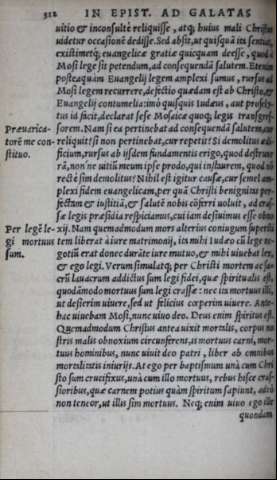 312 IN EPIST. AD GALATAS
uitio & inconsulte reliquisse, atq; huius mali Christus
uidetur occasionē dedisse. Sed absit, ut quisquā ita sentiat,
existimetq; euangelicæ gratiæ quicquam deesse, quod à
Mosi lege sit petendum, ad consequendā salutem. Etenim
posteaquàm Euangelij legem amplexi sumus, rursus ad
Mosi legem recurrere, defectio quædam est ab Christo, &
Euangelij contumelia: imò quisquis Iudæus, aut proselytus
id facit, declarat sese Mosaicæ quoq; legis transgres-
Præuarica- sorem. Nam si ea pertinebat ad consequendā salutem, cur
torē me con- reliquit? si non pertinebat, cur repetit? Si demolitus ædi
stituo. ficium, rursus ab iisdem fundamentis ergo, quod destruxe
rā, non'ne uitiū meum ipse prodo, qui instaurem, quod nō
rectè sim demolitus? Nihil est igitur causæ, cur semel am
plexi fidem euangelicam, per quā Christi benignitas per
fectum & iustitiā, & salutē nobis cōferri uoluit, ad crassæ
legis præsidia respiciamus, cui iam desiuimus esse obno
Per legē le- xij. Nam quemadmodum mors alterius coniugum superstitem
gi mortuus liberat à iure matrimonij, ita mihi Iudæo cū lege ne-
sum. gotiū erat donec durāte iure mutuo, & mihi uiuebat lex,
& ego legi. Verum simulatq; per Christi mortem ac sa-
crū lauacrum addictus sum legi fidei, quæ spiritualis est,
quodāmodo mortuus sum legi crassæ: nec ita mortuus illi,
ut desierim uiuere, sed ut felicius cœperim uiuere. Ante-
hac uiuebam Mosi, nunc uiuo deo. Deus enim spiritus est.
Quemadmodum Christus antea uixit mortalis, corpus no
stris malis obnoxium circunferens, is mortuus carni, mor-
tuus hominibus, nunc uiuit deo patri, liber ab omnibus
mortalitatis iniurijs. At ego per baptismum unà cum Chri
sto sum crucifixus, unà cum illo mortuus, rebus hisce cras-
sioribus, quæ carnem potius quàm spiritum sapiunt, adeò
non teneor, ut illis sim mortuus. Neq; enim uiuo ego ille
quondam